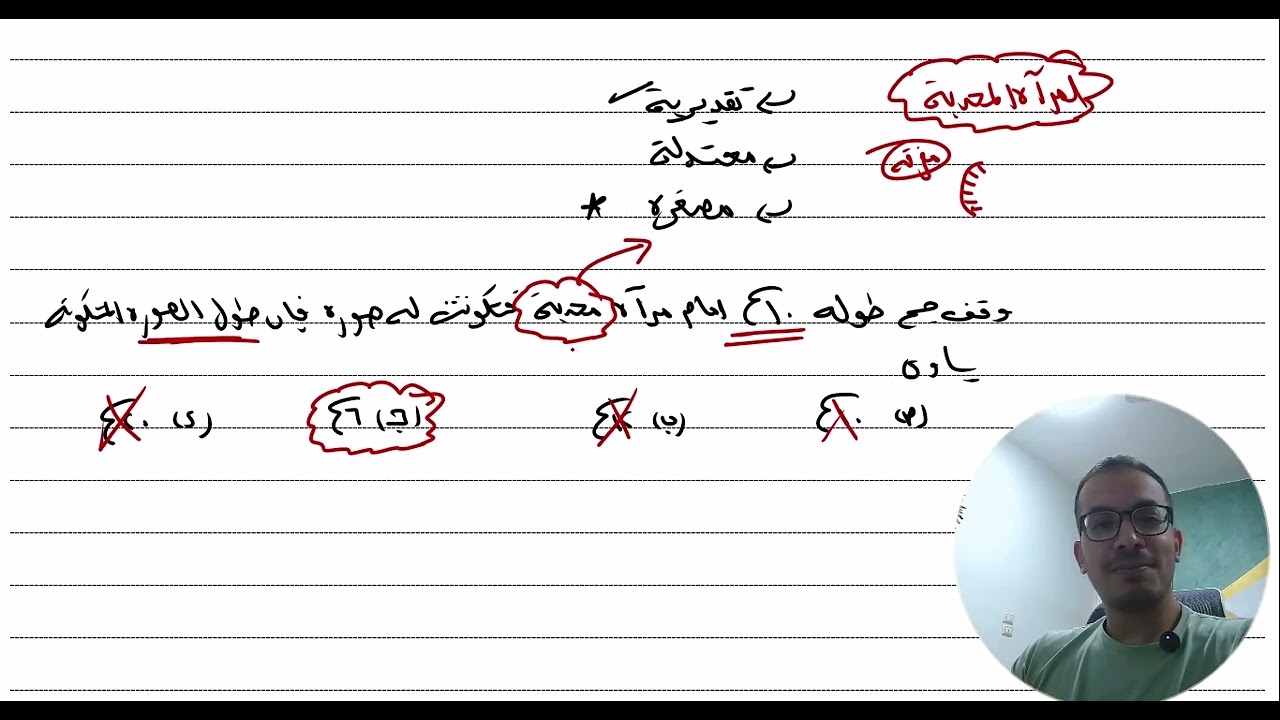 المرآة المحدبة
← تقديرية ✓
فرقة
← معتدلة
← مصغرة *
وقف جسم طوله ١٠سم امام مرآة محدبة فتكونت له صورة فإن طول الصورة المتكونة
يساوى
(ب)
(ج) ٦سم
(د) ٢٠سم